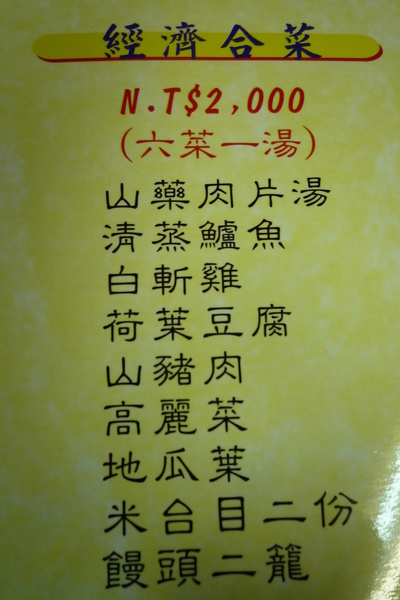 經濟合菜
N.T$2,000
(六菜一湯)
山藥肉片湯
清蒸鱸魚
白斬雞
荷葉豆腐
山豬肉
高麗菜
地瓜葉
米台目二份
饅頭二籠